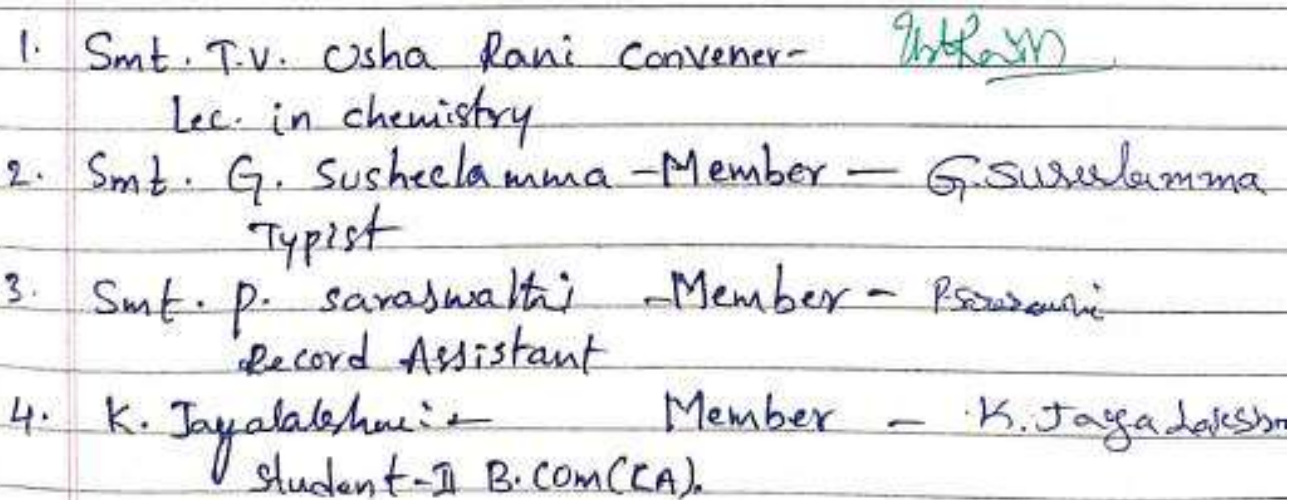 1. Smt. T.V. Usha Rani Convener-
Lec. in chemistry
2. Smt. G. Susheelamma - Member - G. Suseelamma
Typist
3. Smt. P. saraswathi - Member -
Record Assistant
4. K. Jayalakshmi - Member - K. Jaya Lakshm
student-II B.Com(CA).